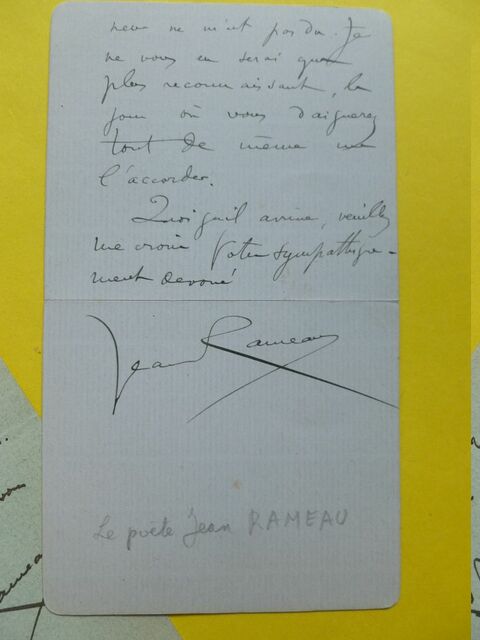 neur ne m'est pas dû. Je
ne vous en serai que
plus reconnaissant, le
jour où vous daignerez
tout de même me
l'accorder.
Quoi qu'il arrive, veuillez
me croire Votre sympathique-
ment dévoué
Jean Rameau
Le poète Jean RAMEAU